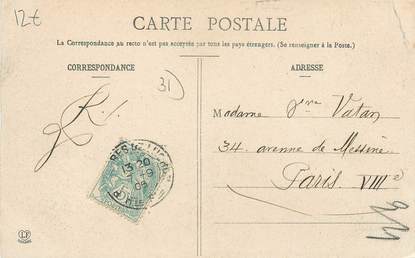 12€
CARTE POSTALE
La Correspondance au recto n'est pas acceptée par tous les pays étrangers. (Se renseigner à la Poste.)
CORRESPONDANCE
ADRESSE
31
Madame Vve Vatan
34. avenue de Messine
Paris VIIIe